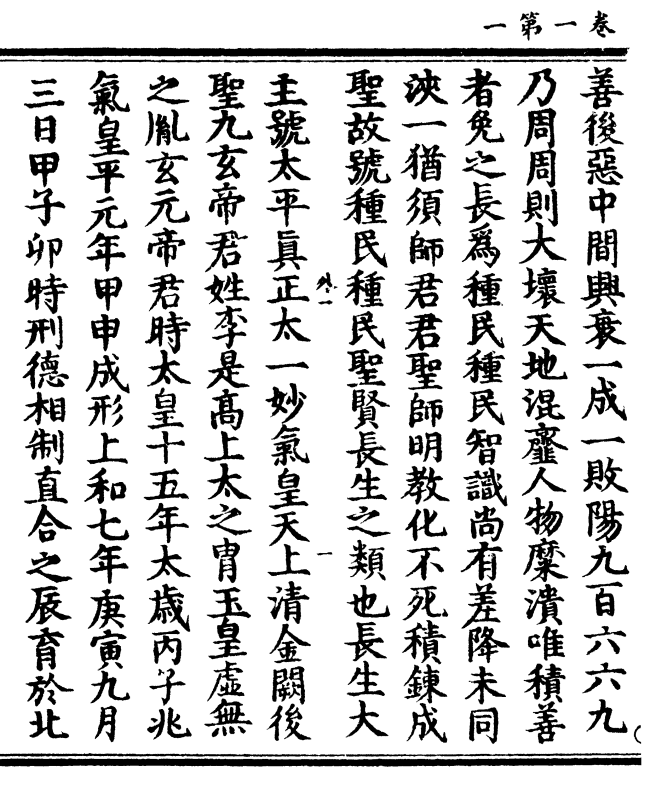 卷一第一
善後惡中間興衰一成一敗陽九百六六九
乃周周則大壞天地混韲人物糜潰唯積善
者免之長爲種民種民智識尚有差降未同
浹一猶須師君君聖師明教化不死積鍊成
聖故號種民種民聖賢長生之類也長生大
主號太平眞正太一妙氣皇天上清金闕後
聖九玄帝君姓李是高上太之胄玉皇虛無
之胤玄元帝君時太皇十五年太歲丙子兆
氣皇平元年甲申成形上和七年庚寅九月
三日甲子卯時刑德相制直合之辰育於北
外一
一